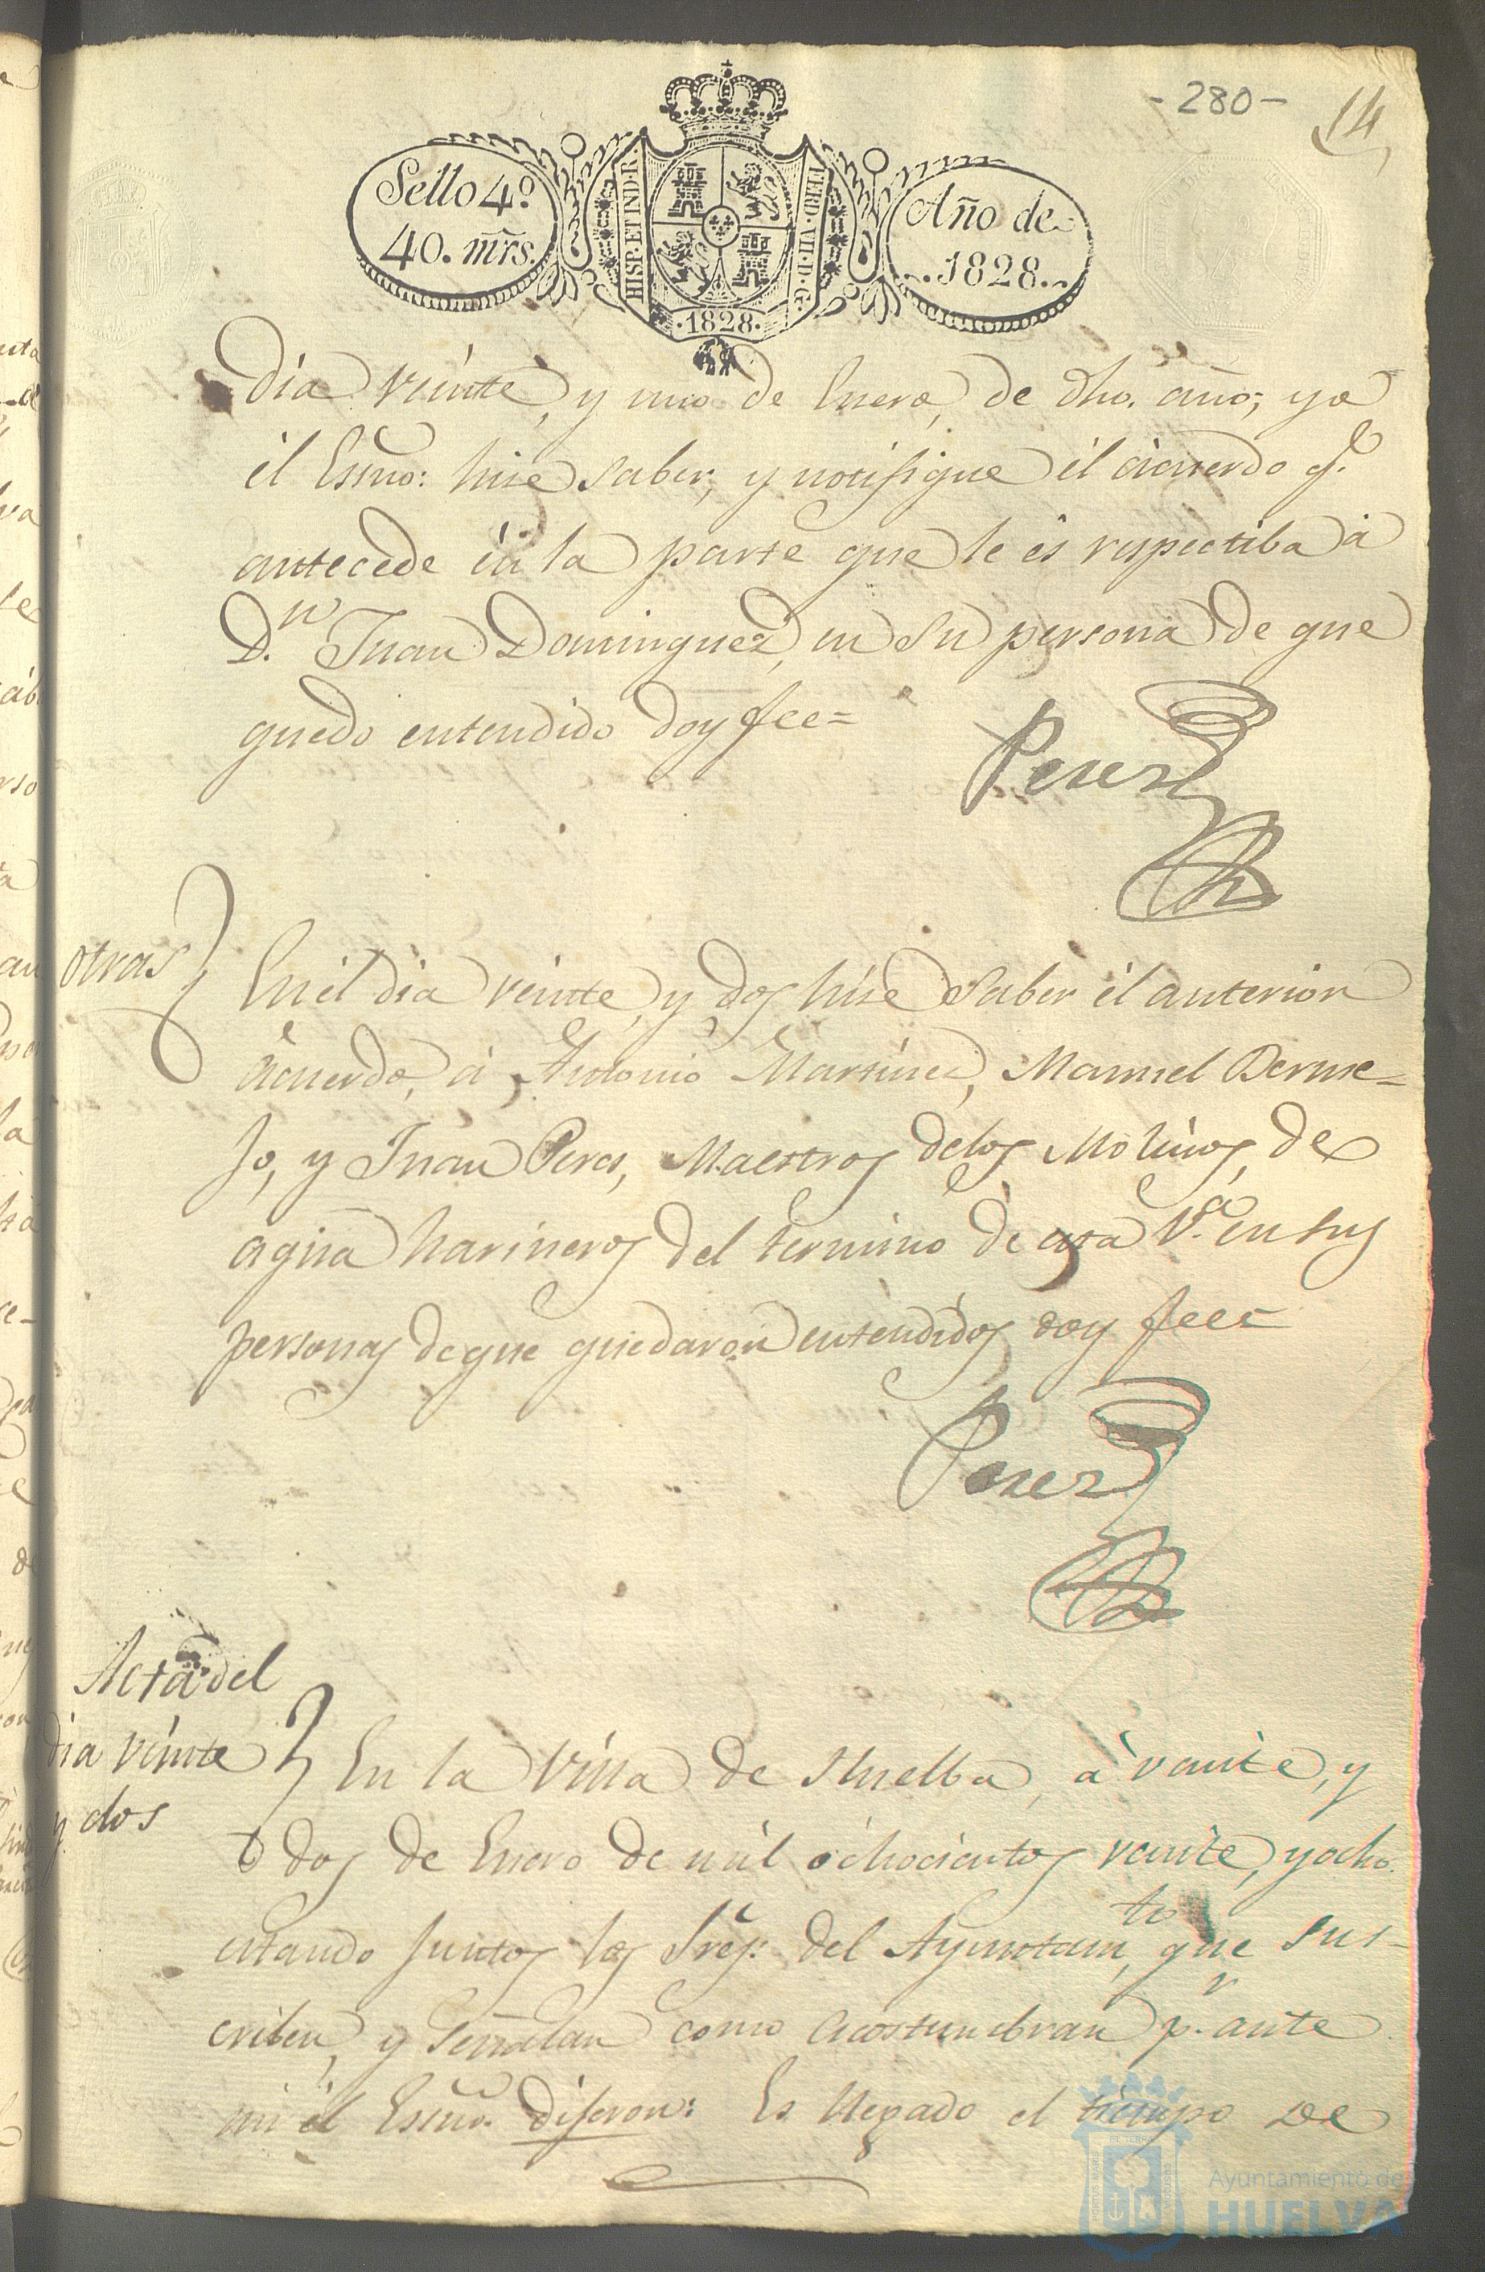 - 280 -
14
Sello 4º
40. mrs.
HISP. ET IND. R.
FERD. VII. D. G.
Año de
1828.
·1828·
dia veinte, y uno de Enero, de dho. año; yo
él Esno: hise saber, y notifique él acuerdo q.e
antecede èn la parte que le ès respectiba à
D.n Juan Dominguez, en su persona de que
quedo entendido doy fee=
Perez
otras
En él dia veinte, y dos hise saber él anterior
àcuerdo, à Antonio Martinez, Manuel Berme=
jo, y Juan Peres, Maestros delos Molinos, de
agua harineros del termino de esta V.a en sus
personas deque quedaron entendidos doy fee=
Perez
Acta del
dia veinte
y dos
En la Villa de Huelba, à veinte, y
dos de Enero de mil ochocientos veinte, y ocho.
estando juntos los Sres. del Ayuntam.to que sus-
criben, y señalan como acostumbran p.r ante
mi èl Esno. dijeron: Es llegado el tiempo de
Ayuntamiento de
HUELVA